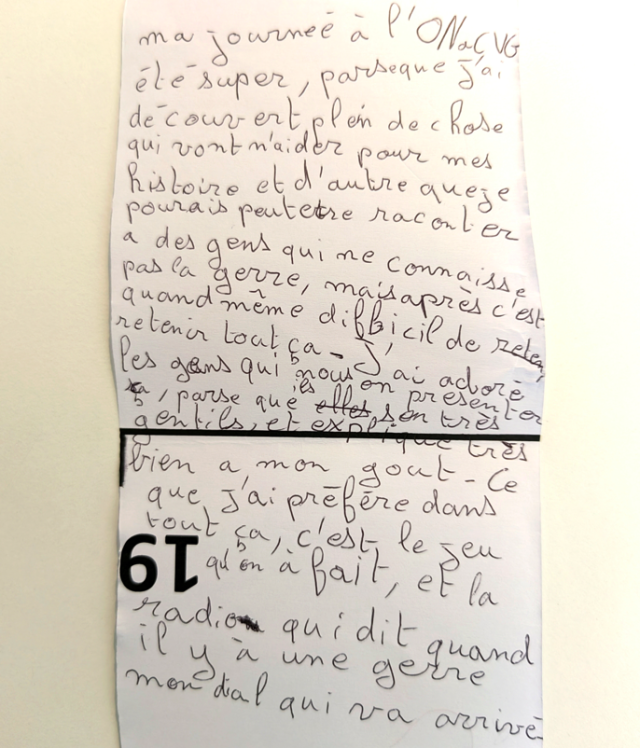 ma journeé à l'ONaCVG
été super, parseque j'ai
découvert plein de chose
qui vont n'aider pour mes
histoire et d'autre queje
pourais peutetre raconter
a des gens qui ne connaisse
pas la gerre, mais après c'est
quand même difficil de
retenir tout ça - J'ai adoré
les gens qui nous on présenter
ça, parse que ils son très
gentils, et explique très
bien a mon gout - Ce
que j'ai préfére dans
tout ça, c'est le jeu
19
qu'on à fait, et la
radio qui dit quand
il y à une gerre
mondial qui va arrivé